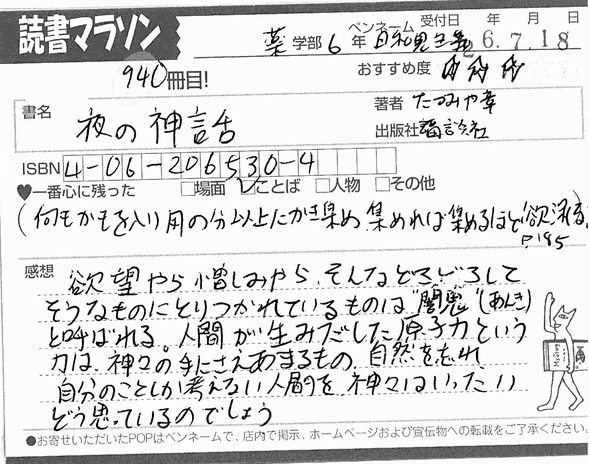 読書マラソン
薬学部6年 ペンネーム 日和見主義 受付日 年 月 日 6.7.18
940冊目!
おすすめ度 ☆☆☆
書名 夜の神話
著者 たつみや章
出版社 講談社
ISBN 4-06-206530-4
♥一番心に残った □場面 ☑ことば □人物 □その他
(何もかもを入り用の分以上にかき集め 集めれば集めるほど欲深る。
P.185
感想 欲望やら憎しみやら、そんなどろどろして
そうなものにとりつかれているものは"闇鬼"(あんき)
と呼ばれる。人間が生みだした原子力という
力は、神々の手にさえあまるもの。自然を忘れ
自分のことしか考えない人間を、神々はいったい
どう思っているのでしょう
●お寄せいただいたPOPはペンネームで、店内で掲示、ホームページおよび宣伝物への転載をご了承ください。